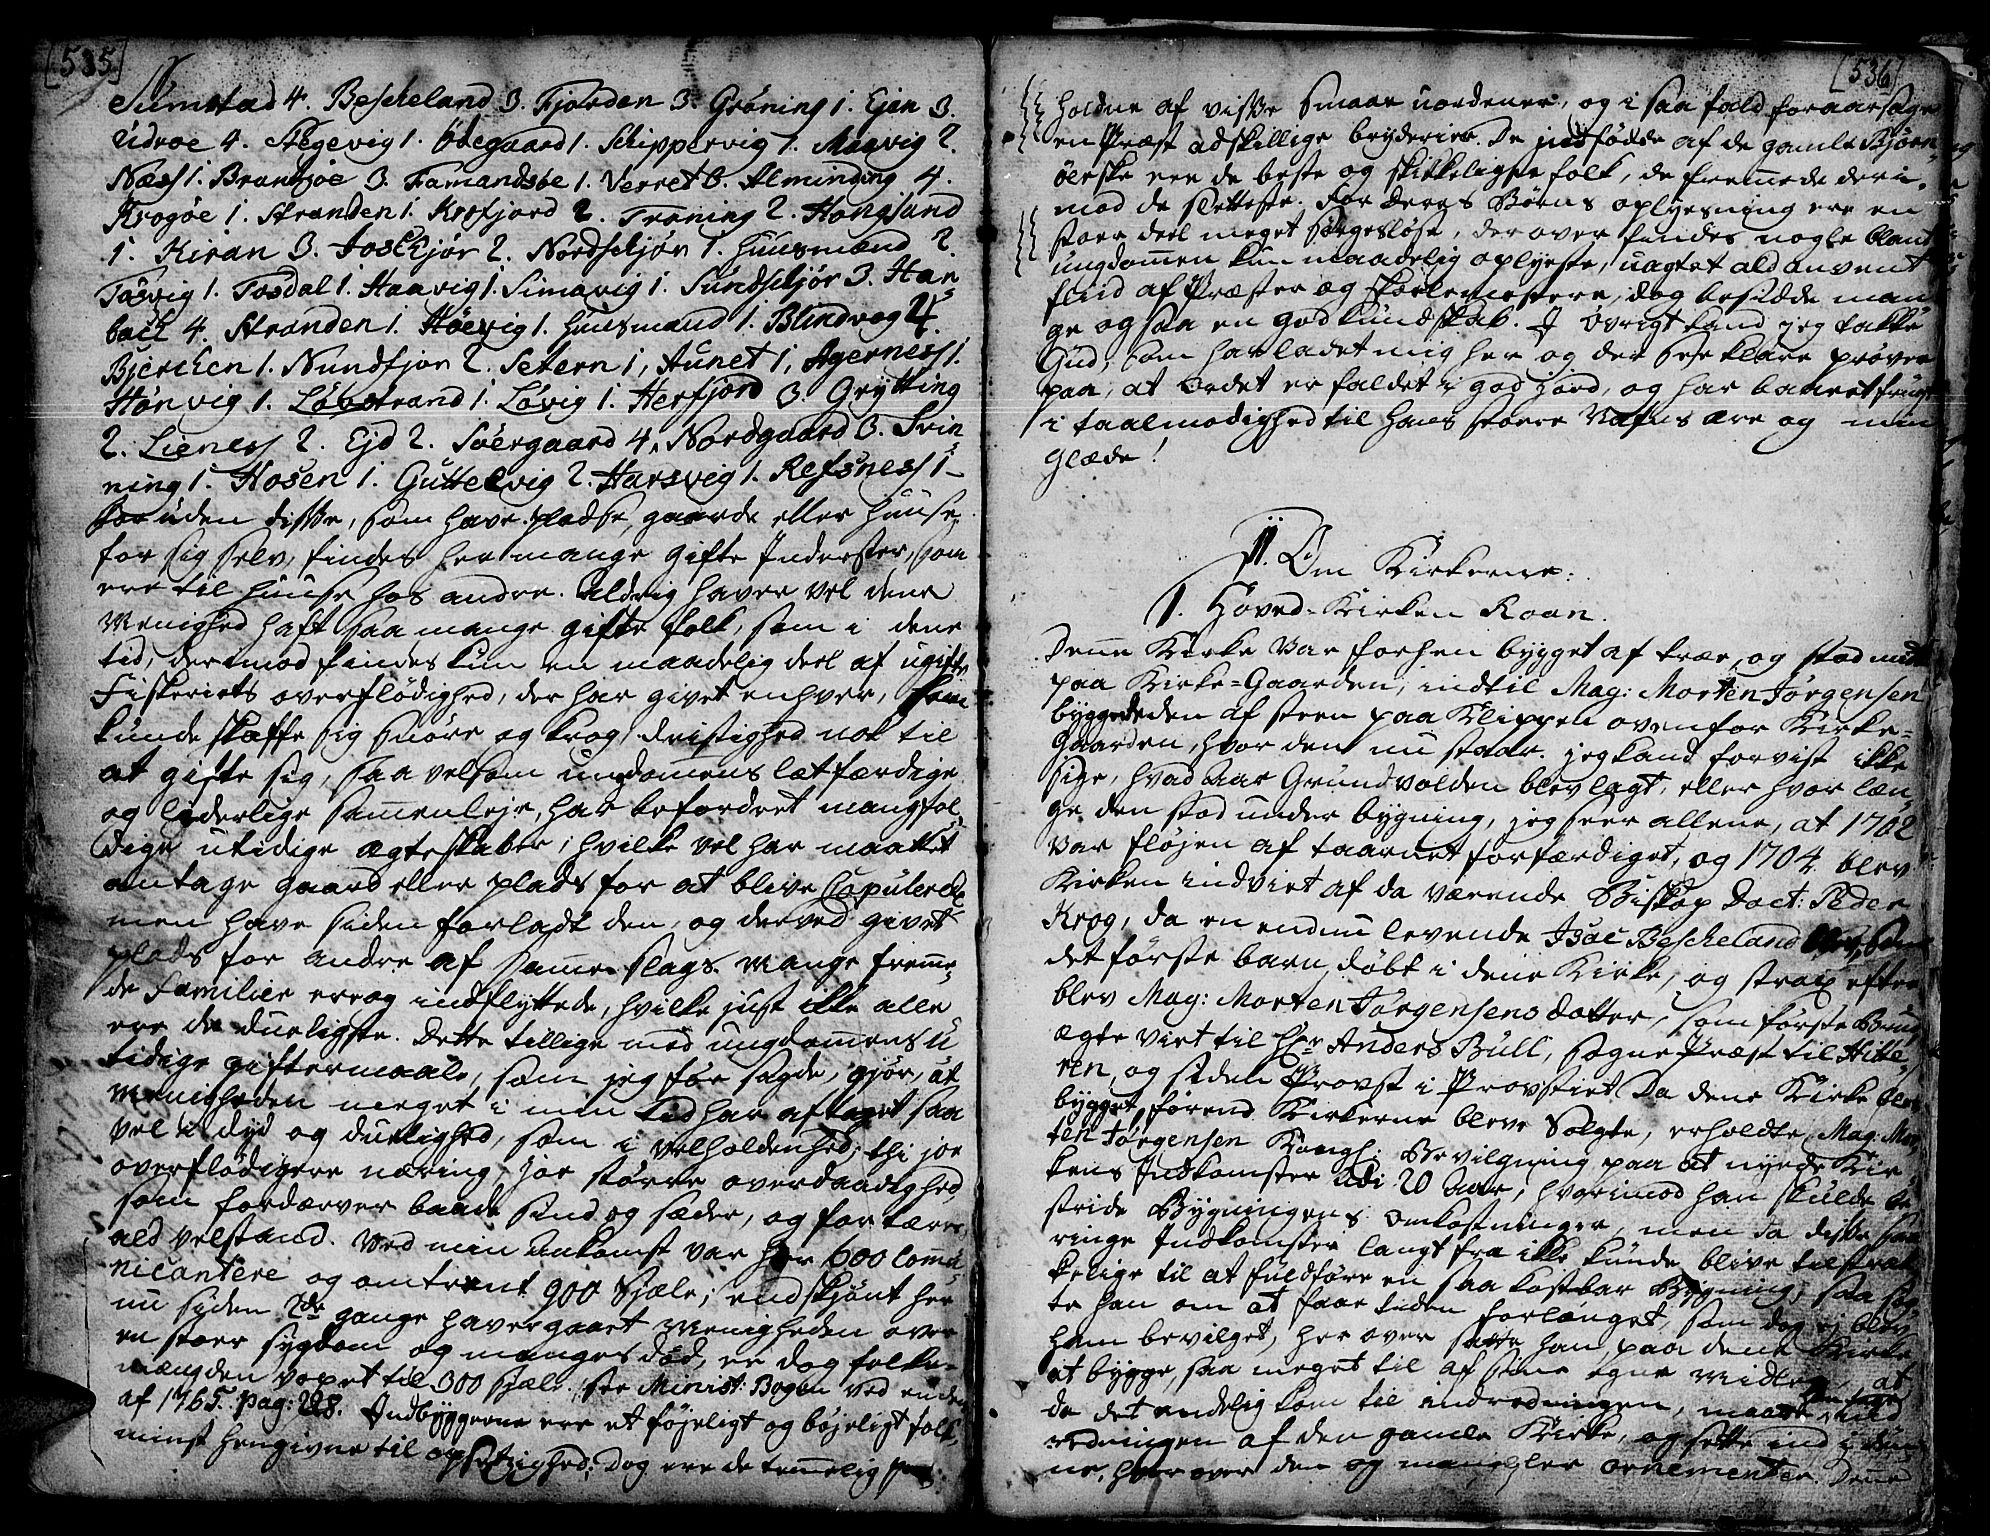 [535]
Sumstad 4. Bescheland 3. Fjorden 3. Grøning 1. Ejen 3.
Udroe 4. Stegevig 1. Ødegaard 1. Schippervig 1. Maavig 2.
Næss 1. Brandsøe 3. Tamandsøe 1. Verret 6. Alminding 4.
Krogøe 1. Stranden 1. Krofjord 2. Traning 2. Hongsand
1. Kiran 3. Joschjør 2. Nordschjør 1. Huusmænd 2.
Tøsvig 1. Tosdal 1. Haavig 1. Simavig 1. Sundschjør 3. Har-
bach 4. Stranden 1. Høevig 1. Huusmand 1. Blindvog 4.
Bjerchen 1. Nundfjor 2. Setern 1, Aunet 1, Agerness 1.
Hønvig 1. Løbstrand 1. Løvig 1. Herfjord 3. Grytting
2. Lieness 2. Ejd 2. Søergaard 4. Nordgaard 3. Svin-
ning 1. Hosen 1. Guttelvig 2. Harsvig 1. Refsness 1-
foruden disse, som have pladse, gaarde eller Huuse
for sig selv, findes her mange gifte Inderster, som
ere til Huuse hos andre. Aldrig haver vel denne
Menighed haft saa mange gifte folk, som i denne
tid, derimod findes kun en maadelig deel af ugifte,
Fiskeriets overflødighed, der har givet enhver, som
kunde skaffe sig snøre og krog, dristighed nok til
at gifte sig, saa vel som ungdomens letfærdige
og liderlige sammenleje, har befordret mangfol-
dige utidige ægteskaber, hvilke vel har maattet
antage gaard eller plads for at blive Copulerede
men have siden forladt den, og derved givet
plads for andre af samme slags. Mange fremme-
de Familier ere og indflyttede, hvilke just ikke alle
ere de dueligste. Dette tillige med ungdomens u
tidige giftermaale, som jeg før sagde, gjør, at
Menigheden meget i min tid har aftaget saa
vel i dyd og duelighed, som i velholdenhed; thi jo
overflødigere næring, jo større overdaadighed
som fordærver baade sind og sæder, og fortærer
ald velstand. Ved min Ankomst var her 600 Comu-
nicantere og omtrent 900 Sjæle; endskjønt her
nu siden 2de gange haver gaaet Menigheden over
en stoer sygdom og manges død, er dog folke-
mængden voxet til 300 sjæle. see Minist: Bogen ved enden
af 1765. pag: 228. Indbyggerne ere et føjeligt og bøjeligt folk
minst hengivne til opsetzighed; Dog ere de temmelig
[536]
holdne af visse smaae uordener, og i saa fald foraarsage
en Præst adskillige bryderier. De indfødde af de gamle Bjørn-
øerske ere de beste og skikkeligste folk, de fremmede deri-
mod de sletteste. For deres Børns oplysning ere en
stoer deel meget sørgesløse, derover findes nogle blant
ungdommen kun maadelig oplyeste, uagtet ald anvent
fliid af Præster og skoelemestere, dog besidde man-
ge og saa en god kundskab. I øvrigt kand jeg takke
Gud, som har ladet mig her og der see klare prøver
paa, at Ordet er faldet i god Jord, og har baaret frugt
i taalmodighed til hans store Nafns ære og min
glæde!
II. Om Kirkerne.
1. Hoved-Kirken Roan.
Denne Kirke var forhen bygget af træ, og stod midt
paa Kirke-Gaarden, indtil Mag: Morten Jørgensen
byggede den af steen paa Klippen ovenfor Kirke-
Gaarden, hvor den nu staar. jeg kand for vist ikke
sige, hvad Aar Grundvolden blev lagt, eller hvor læn-
ge den stod under bygning, jeg seer allene, at 1702
var fløjen af taarnet forfærdiget, og 1704 blev
Kirken indviet af da værende Biskop Doct: Peder
Krog, da en endnu levende Isac Bescheland blev, som
det første barn, døbt i denne Kirke, og strax efter
blev Mag: Morten Jørgensens datter, som første Brud,
ægte viet til Hr Anders Bull, sogne Præst til Hitte-
ren, og siden Provst i Provstiet. Da denne Kirke blev
bygget, førend Kirkerne bleve Solgte, erholdte Mag: Mor-
ten Jørgensen Kongl: Bevilgning paa at nyde Kir-
kens Indkomster udi 20 Aar, hvorimod han skulde be-
stride Bygningens omkostninger, men da disse saa
ringe Indkomster langt fra ikke kunde blive tilstræk-
kelige til at fuldføre en saa kostbar Bygning, saa søg-
te han om at faae tiden forlænget, som dog ej blev
ham bevilget, her over satte han, paa denne Kirke
at bygge, saa meget til af sine egne Midler, at
da det endelig kom til indredningen, maatte
redningen af den gamle Kirke, og sette ind i den
ne, hvor over den og mangler ornementer. Denne